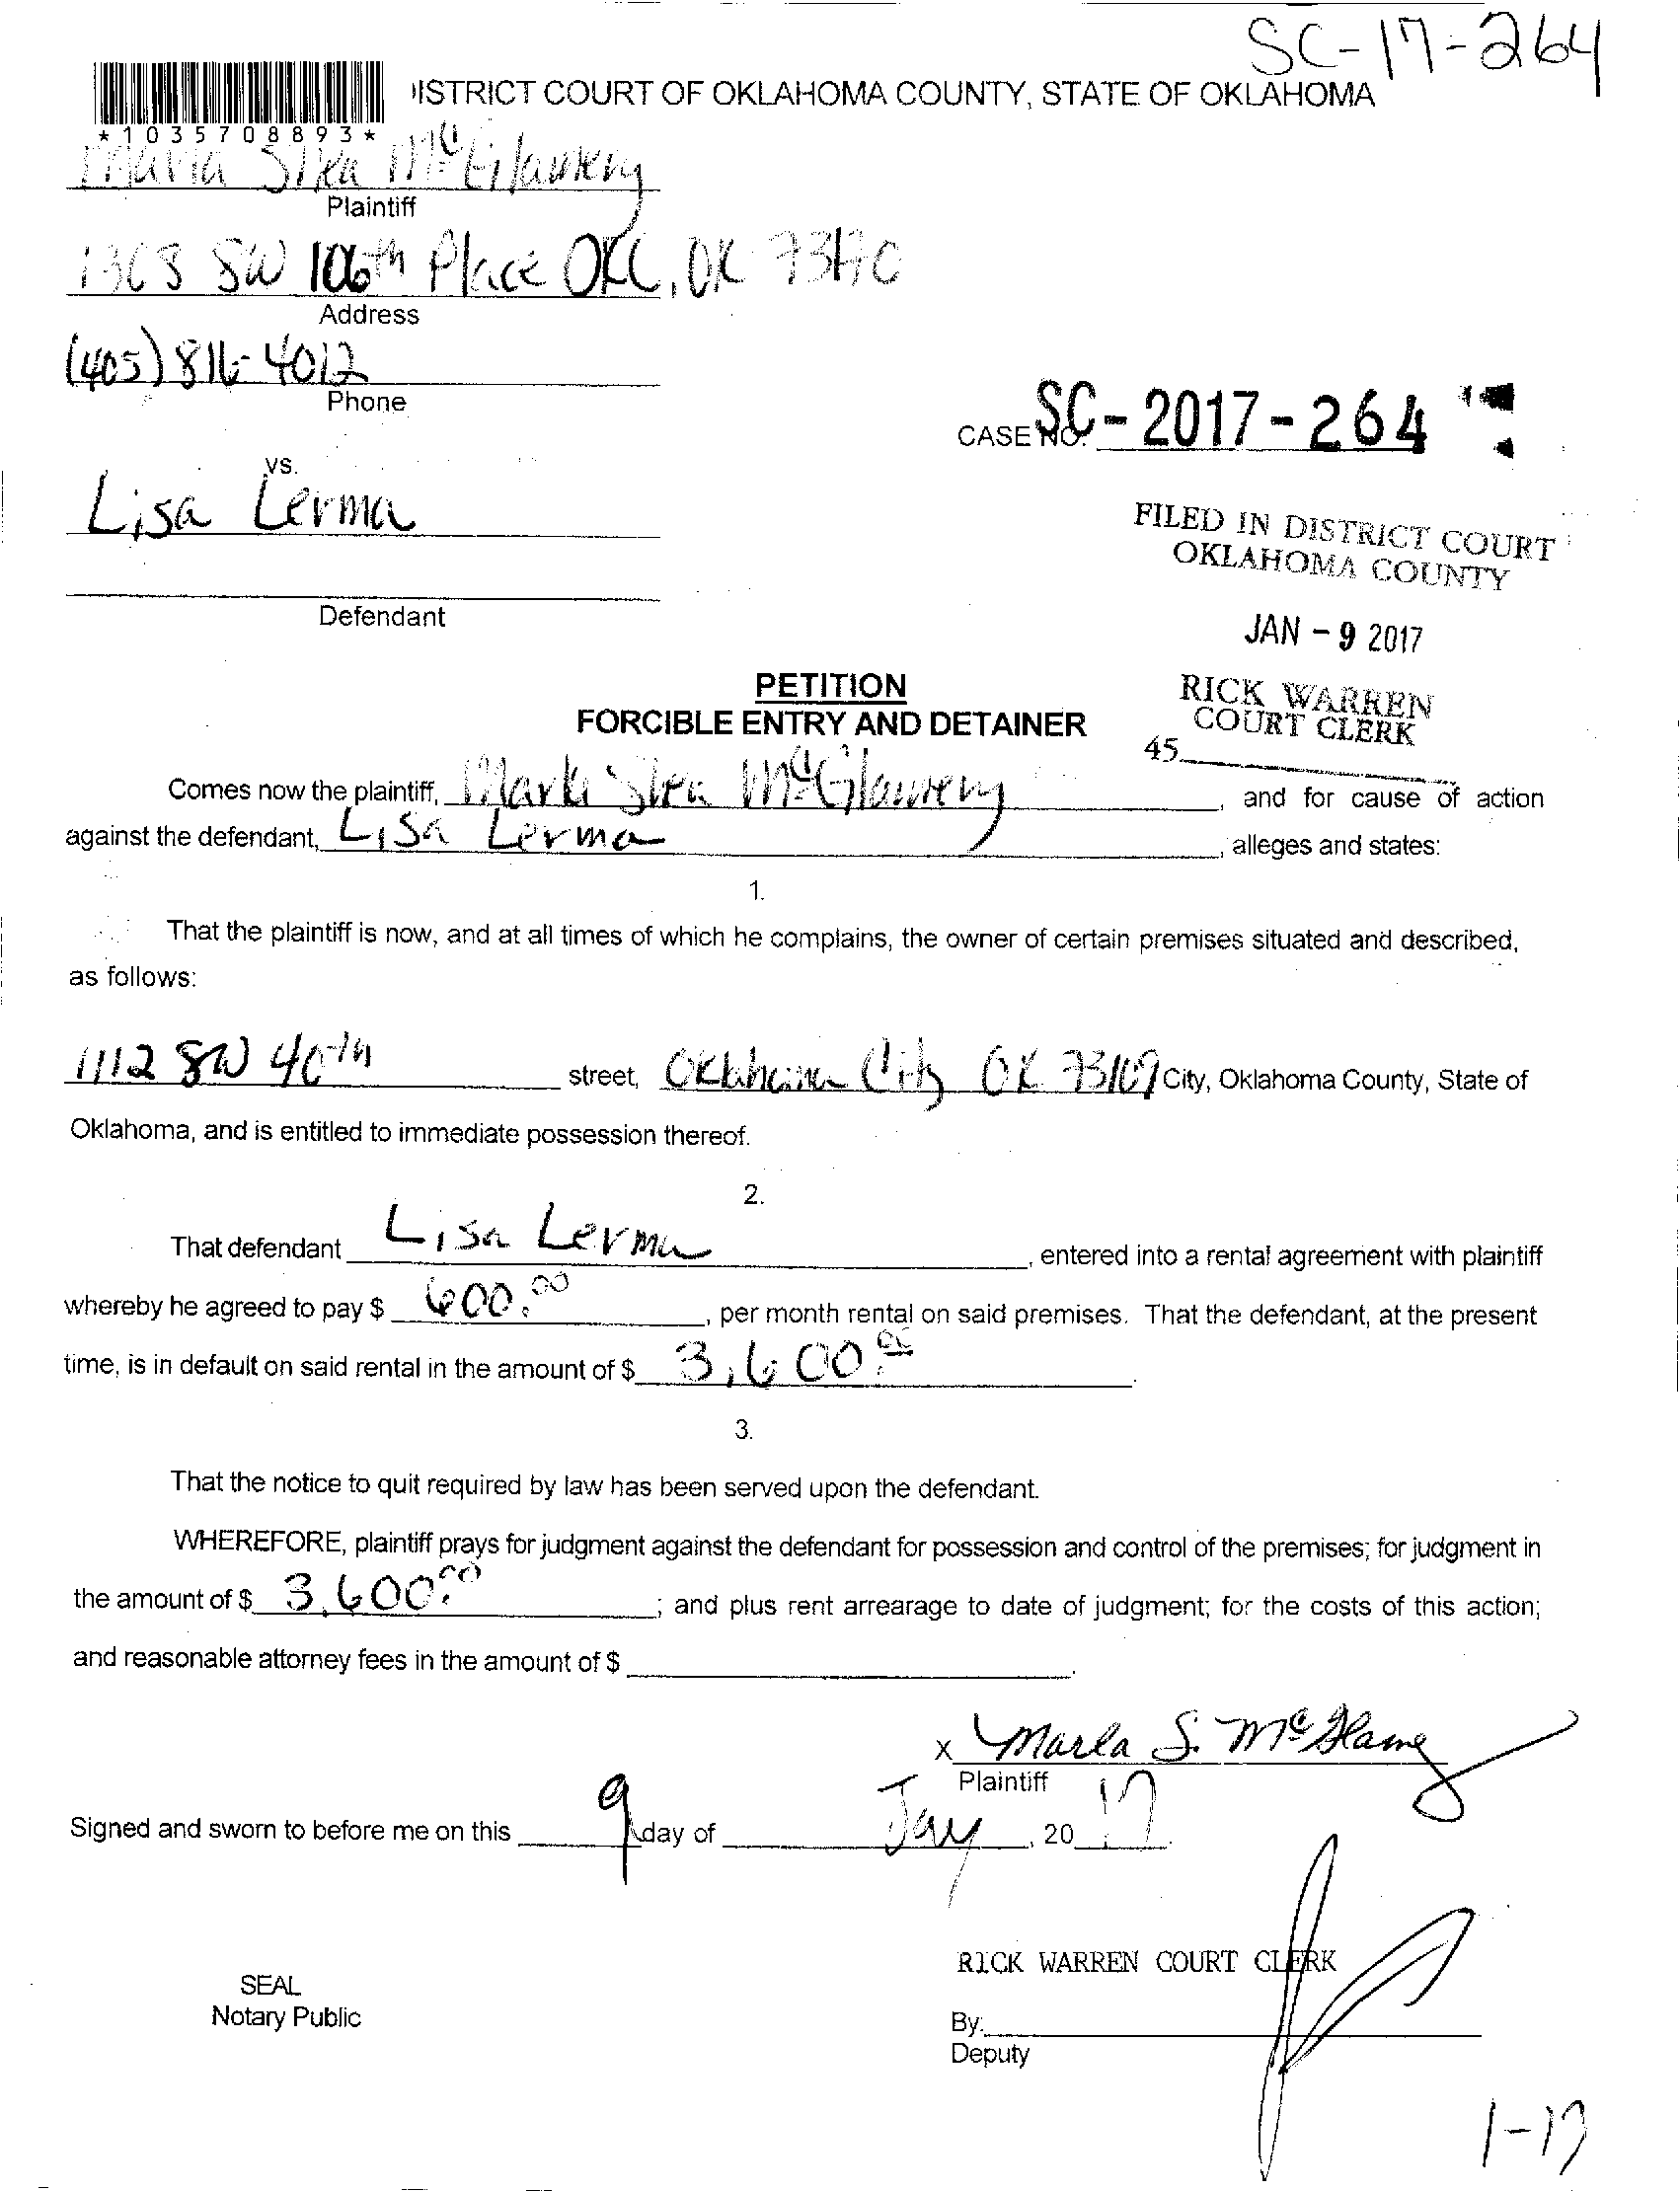 SC-17-264
ISTRICT COURT OF OKLAHOMA COUNTY, STATE OF OKLAHOMA
*1035708893*
Marla Shea McGlamery
Plaintiff
1308 SW 106th Place OKC, OK 73170
Address
(405) 816-4012
Phone
CASE NO. SC-2017-264
vs.
Lisa Lerma
FILED IN DISTRICT COURT
OKLAHOMA COUNTY
Defendant
JAN - 9 2017
PETITION
RICK WARREN
FORCIBLE ENTRY AND DETAINER
COURT CLERK
45
Comes now the plaintiff, Marla Shea McGlamery, and for cause of action
against the defendant, Lisa Lerma, alleges and states:
1.
That the plaintiff is now, and at all times of which he complains, the owner of certain premises situated and described,
as follows:
1112 SW 40th street, Oklahoma City OK 73109 City, Oklahoma County, State of
Oklahoma, and is entitled to immediate possession thereof.
2.
That defendant Lisa Lerma, entered into a rental agreement with plaintiff
whereby he agreed to pay $ 600.00, per month rental on said premises. That the defendant, at the present
time, is in default on said rental in the amount of $ 3,600.00.
3.
That the notice to quit required by law has been served upon the defendant.
WHEREFORE, plaintiff prays for judgment against the defendant for possession and control of the premises; for judgment in
the amount of $ 3,600.00; and plus rent arrearage to date of judgment; for the costs of this action;
and reasonable attorney fees in the amount of $ .
x Marla S. McGlamery
Plaintiff
Signed and sworn to before me on this 9 day of Jan, 2017.
RICK WARREN COURT CLERK
SEAL
Notary Public
By:
Deputy
1-17